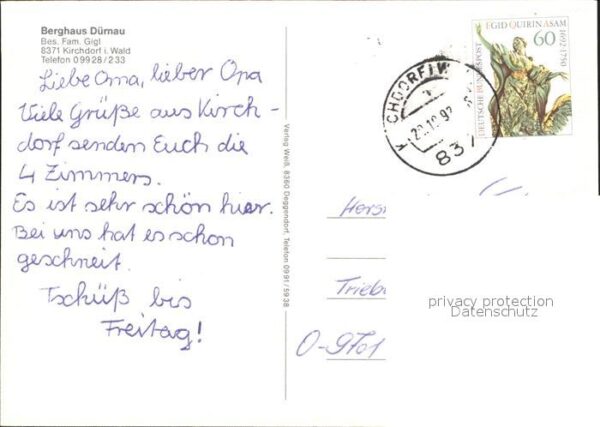 Berghaus Dürnau
Bes. Fam. Gigl
8371 Kirchdorf i. Wald
Telefon 0 99 28 / 2 33
Liebe Oma, lieber Opa
Viele Grüße aus Kirch-
dorf senden Euch die
4 Zimmers.
Es ist sehr schön hier.
Bei uns hat es schon
geschneit.
Tschüß bis
Freitag!
Verlag Weiß, 8360 Deggendorf, Telefon 09 91 / 59 38
EGID QUIRIN ASAM
1692-1750
60
DEUTSCHE BUNDESPOST
CHDORF I W
837
Hers
Trieb
O-9701
privacy protection
Datenschutz